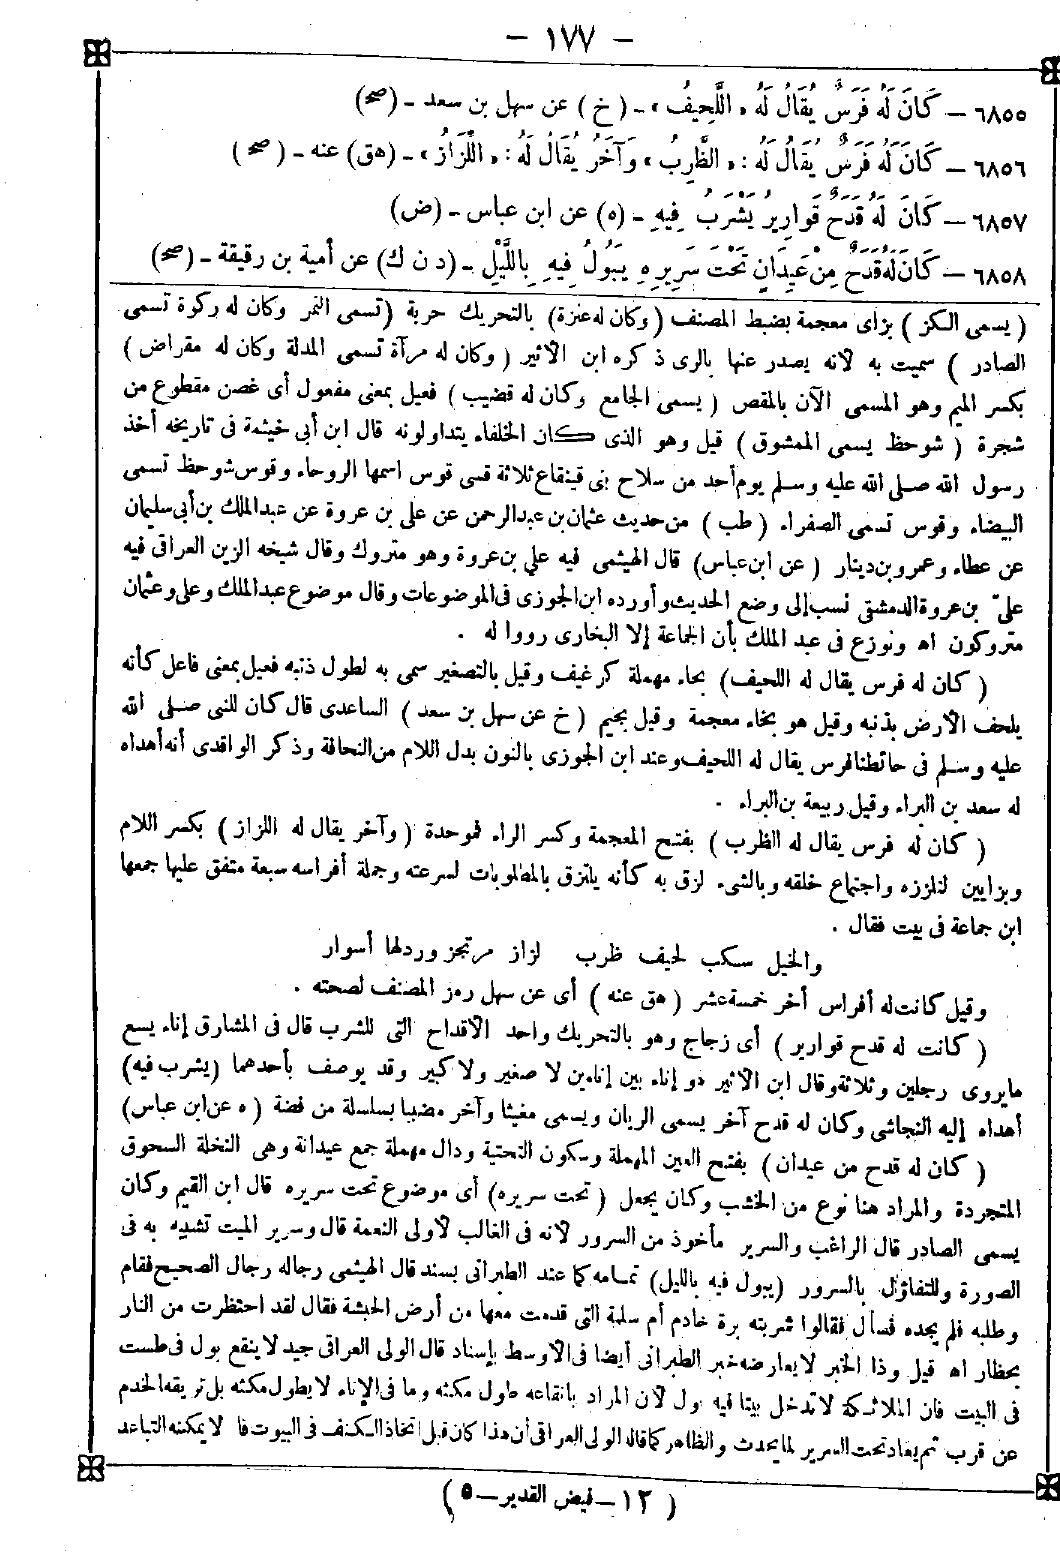 – ١٧٧ –
٦٨٥٥ – كَانَ لَهُ فَرَسٌ يُقَالُ لَهُ «اللَّحِيفُ» – (خ) عن سهل بن سعد – (صح)
٦٨٥٦ – كَانَ لَهُ فَرَسٌ يُقَالُ لَهُ: «الظَّرِبُ» وَآخَرُ يُقَالُ لَهُ: «اللَّزَازُ» – (هق) عنه – (صح)
٦٨٥٧ – كَانَ لَهُ قَدَحٌ قَوَارِيرُ يَشْرَبُ فِيهِ – (ه) عن ابن عباس – (ض)
٦٨٥٨ – كَانَ لَهُ قَدَحٌ مِنْ عَيدَانٍ تَحْتَ سَرِيرِهِ يَبُولُ فِيهِ بِاللَّيْلِ – (د ن ك) عن أمية بن رقيقة – (صح)
(يسمى الكز) بزاى معجمة بضبط المصنف (وكان له عنزة) بالتحريك حربة (تسمى النمر وكان له ركوة تسمى
الصادر) سميت به لأنه يصدر عنها بالرى ذكره ابن الأثير (وكان له مرآة تسمى المدلة وكان له مقراض)
بكسر الميم وهو المسمى الآن بالمقص (يسمى الجامع وكان له قضيب) فعيل بمعنى مفعول أى غصن مقطوع من
شجرة (شوحظ يسمى الممشوق) قيل وهو الذى كان الخلفاء يتداولونه قال ابن أبي خيثمة فى تاريخه أخذ
رسول الله صلى الله عليه وسلم يوم أحد من سلاح بنى قينقاع ثلاثة قسى قوس اسمها الروحاء وقوس شوحظ تسمى
البيضاء وقوس تسمى الصفراء (طب) من حديث عثمان بن عبد الرحمن عن على بن عروة عن عبد الملك بن أبى سليمان
عن عطاء وعمرو بن دينار (عن ابن عباس) قال الهيثمى فيه علي بن عروة وهو متروك وقال شيخه الزين العراقى فيه
علىّ بن عروة الدمشقى نسب إلى وضع الحديث وأورده ابن الجوزى فى الموضوعات وقال موضوع عبد الملك وعلى وعثمان
متروكون اه ونوزع فى عبد الملك بأن الجماعة إلا البخارى رووا له .
(كان له فرس يقال له اللحيف) بحاء مهملة كرغيف وقيل بالتصغير سمى به لطول ذنبه فعيل بمعنى فاعل كأنه
يلحف الأرض بذنبه وقيل هو بخاء معجمة وقيل بجيم (خ عن سهل بن سعد) الساعدى قال كان للنبى صلى الله
عليه وسلم فى حائطنا فرس يقال له اللحيف وعند ابن الجوزى بالنون بدل اللام من النحافة وذكر الواقدى أنه أهداه
له سعد بن البراء وقيل ربيعة بن البراء .
(كان له فرس يقال له الظرب) بفتح المعجمة وكسر الراء فموحدة (وآخر يقال له اللزاز) بكسر اللام
وبزايين لتلززه واجتماع خلقه وبالشىء لزق به كأنه يلتزق بالمطلوبات لسرعته وجملة أفراسه سبعة متفق عليها جمعها
ابن جماعة فى بيت فقال .
والخيل سكب لحيف ظرب لزاز مرتجز وردلها أسوار
وقيل كانت له أفراس أخر خمسة عشر (هق عنه) أى عن سهل رمز المصنف لصحته .
(كانت له قدح قوارير) أى زجاج وهو بالتحريك واحد الأقداح التى للشرب قال فى المشارق إناء يسع
مايروى رجلين وثلاثة وقال ابن الأثير هو إناء بين إناءين لا صغير ولا كبير وقد يوصف بأحدهما (يشرب فيه)
أهداه إليه النجاشى وكان له قدح آخر يسمى الريان ويسمى مغيثا وآخر مضببا بسلسلة من فضة (ه عن ابن عباس)
(كان له قدح من عيدان) بفتح العين المهملة وسكون التحتية ودال مهملة جمع عيدانة وهى النخلة السحوق
المتجردة والمراد هنا نوع من الخشب وكان يجعل (تحت سريره) أى موضوع تحت سريره قال ابن القيم وكان
يسمى الصادر قال الراغب والسرير مأخوذ من السرور لأنه فى الغالب لأولى النعمة قال وسرير الميت تشبيه به فى
الصورة وللتفاؤل بالسرور (يبول فيه بالليل) تمامه كما عند الطبرانى بسند قال الهيثمى رجاله رجال الصحيح فقام
وطلبه فلم يجده فسأل فقالوا شربته برة خادم أم سلمة التى قدمت معها من أرض الحبشة فقال لقد احتظرت من النار
بحظار اه قيل وذا الخبر لا يعارضه خبر الطبرانى أيضا فى الأوسط بإسناد قال الولى العراقى جيد لا ينتقع بول فى طست
فى البيت فان الملائكة لا تدخل بيتا فيه بول لأن المراد بانقاعه طول مكثه وما فى الإناء لا يطول مكثه بل تريقه الخدم
عن قرب ثم يعاد تحت السرير لما يحدث والظاهر كما قاله الولى العراقى أن هذا كان قبل اتخاذ الكنف فى البيوت فا لا يمكنه التباعد
(١٢ – فيض القدير – ٥)